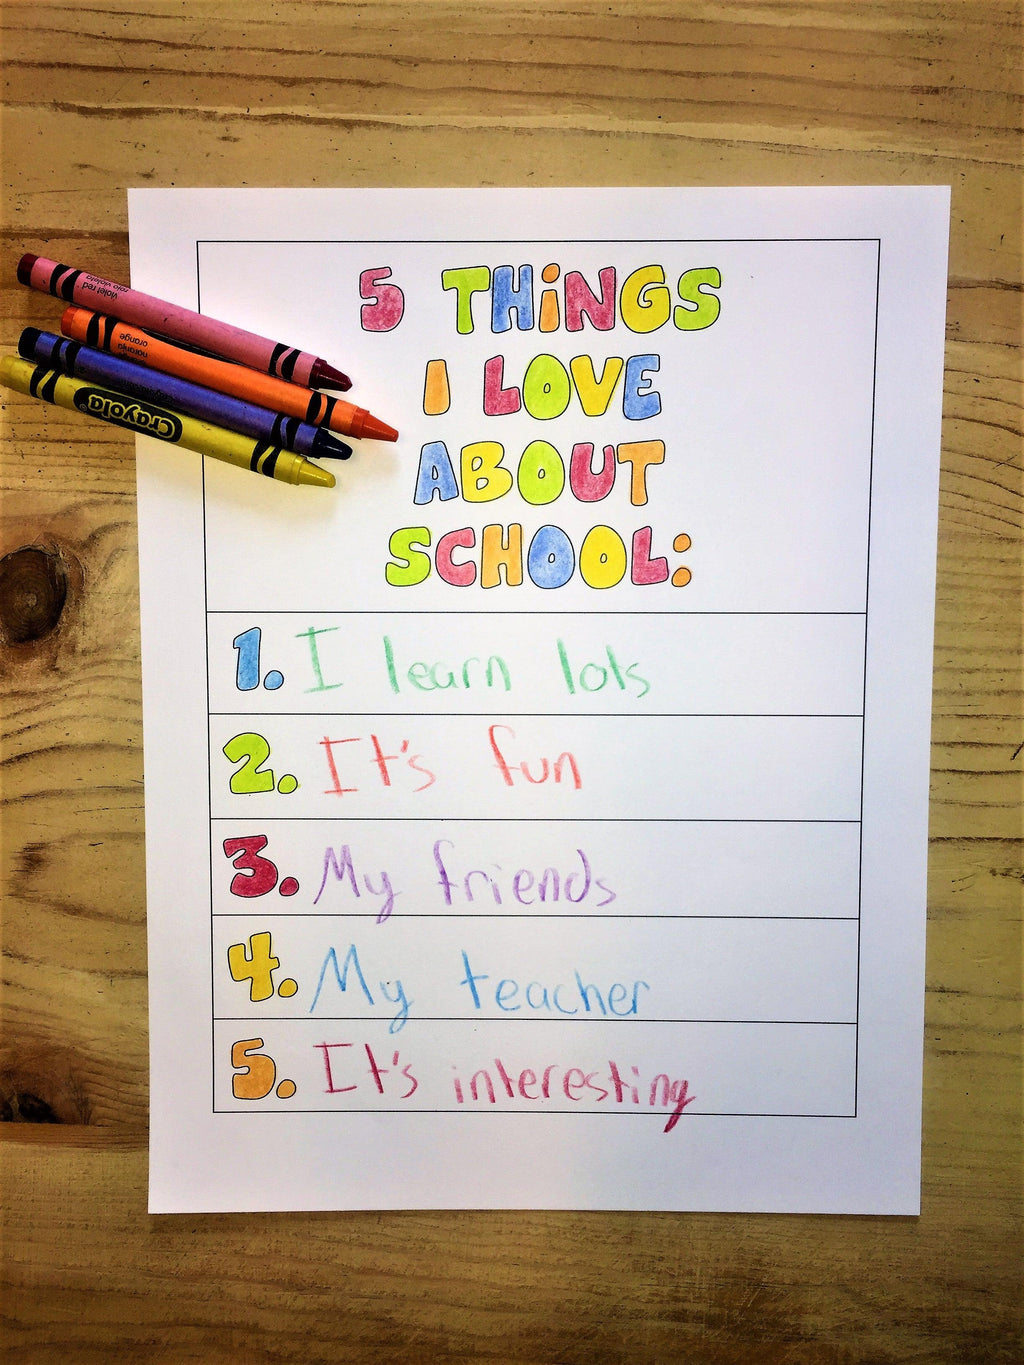 5 THiNGS
I LOVE
ABOUT
SCHOOL:
1. I learn lots
2. It's fun
3. My friends
4. My teacher
5. It's interesting
violet red
rojo violeta
naranja
orange
Crayola